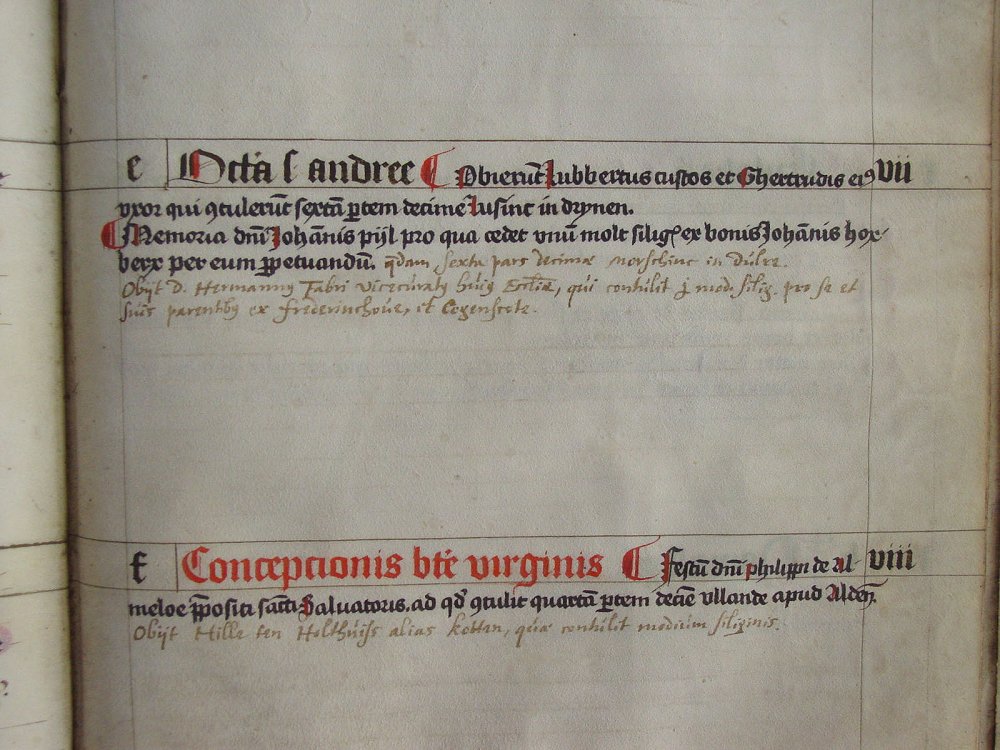 e Octa s andree Obierūt Lubbertus custos et Ghertrudis eiꝰ vii
vxor qui ꝯtulerūt sextā ꝑtem decime Lusinc in drynen.
Memoria dnī Johānis pijl pro qua cedet vnū molt silig ex bonis Johānis hox-
berx per eum ꝑpetuandū. qdam sexta pars decimæ in
Obijt D. Hermannꝰ Fabri vicecuratꝰ huiꝰ Ecclīæ, qui contulit j mod. silig. pro se et
suis parentibꝰ ex frederinchoue, it
f Conceptionis bte virginis Festū dnī philippi de Al- viii
meloe ꝓpositi sancti Saluatoris. ad qd ꝯtulit quartā ꝑtem decie vllande apud Alden
Obijt Hille ten Holthuiss alias kotten, quæ contulit modium siliginis.